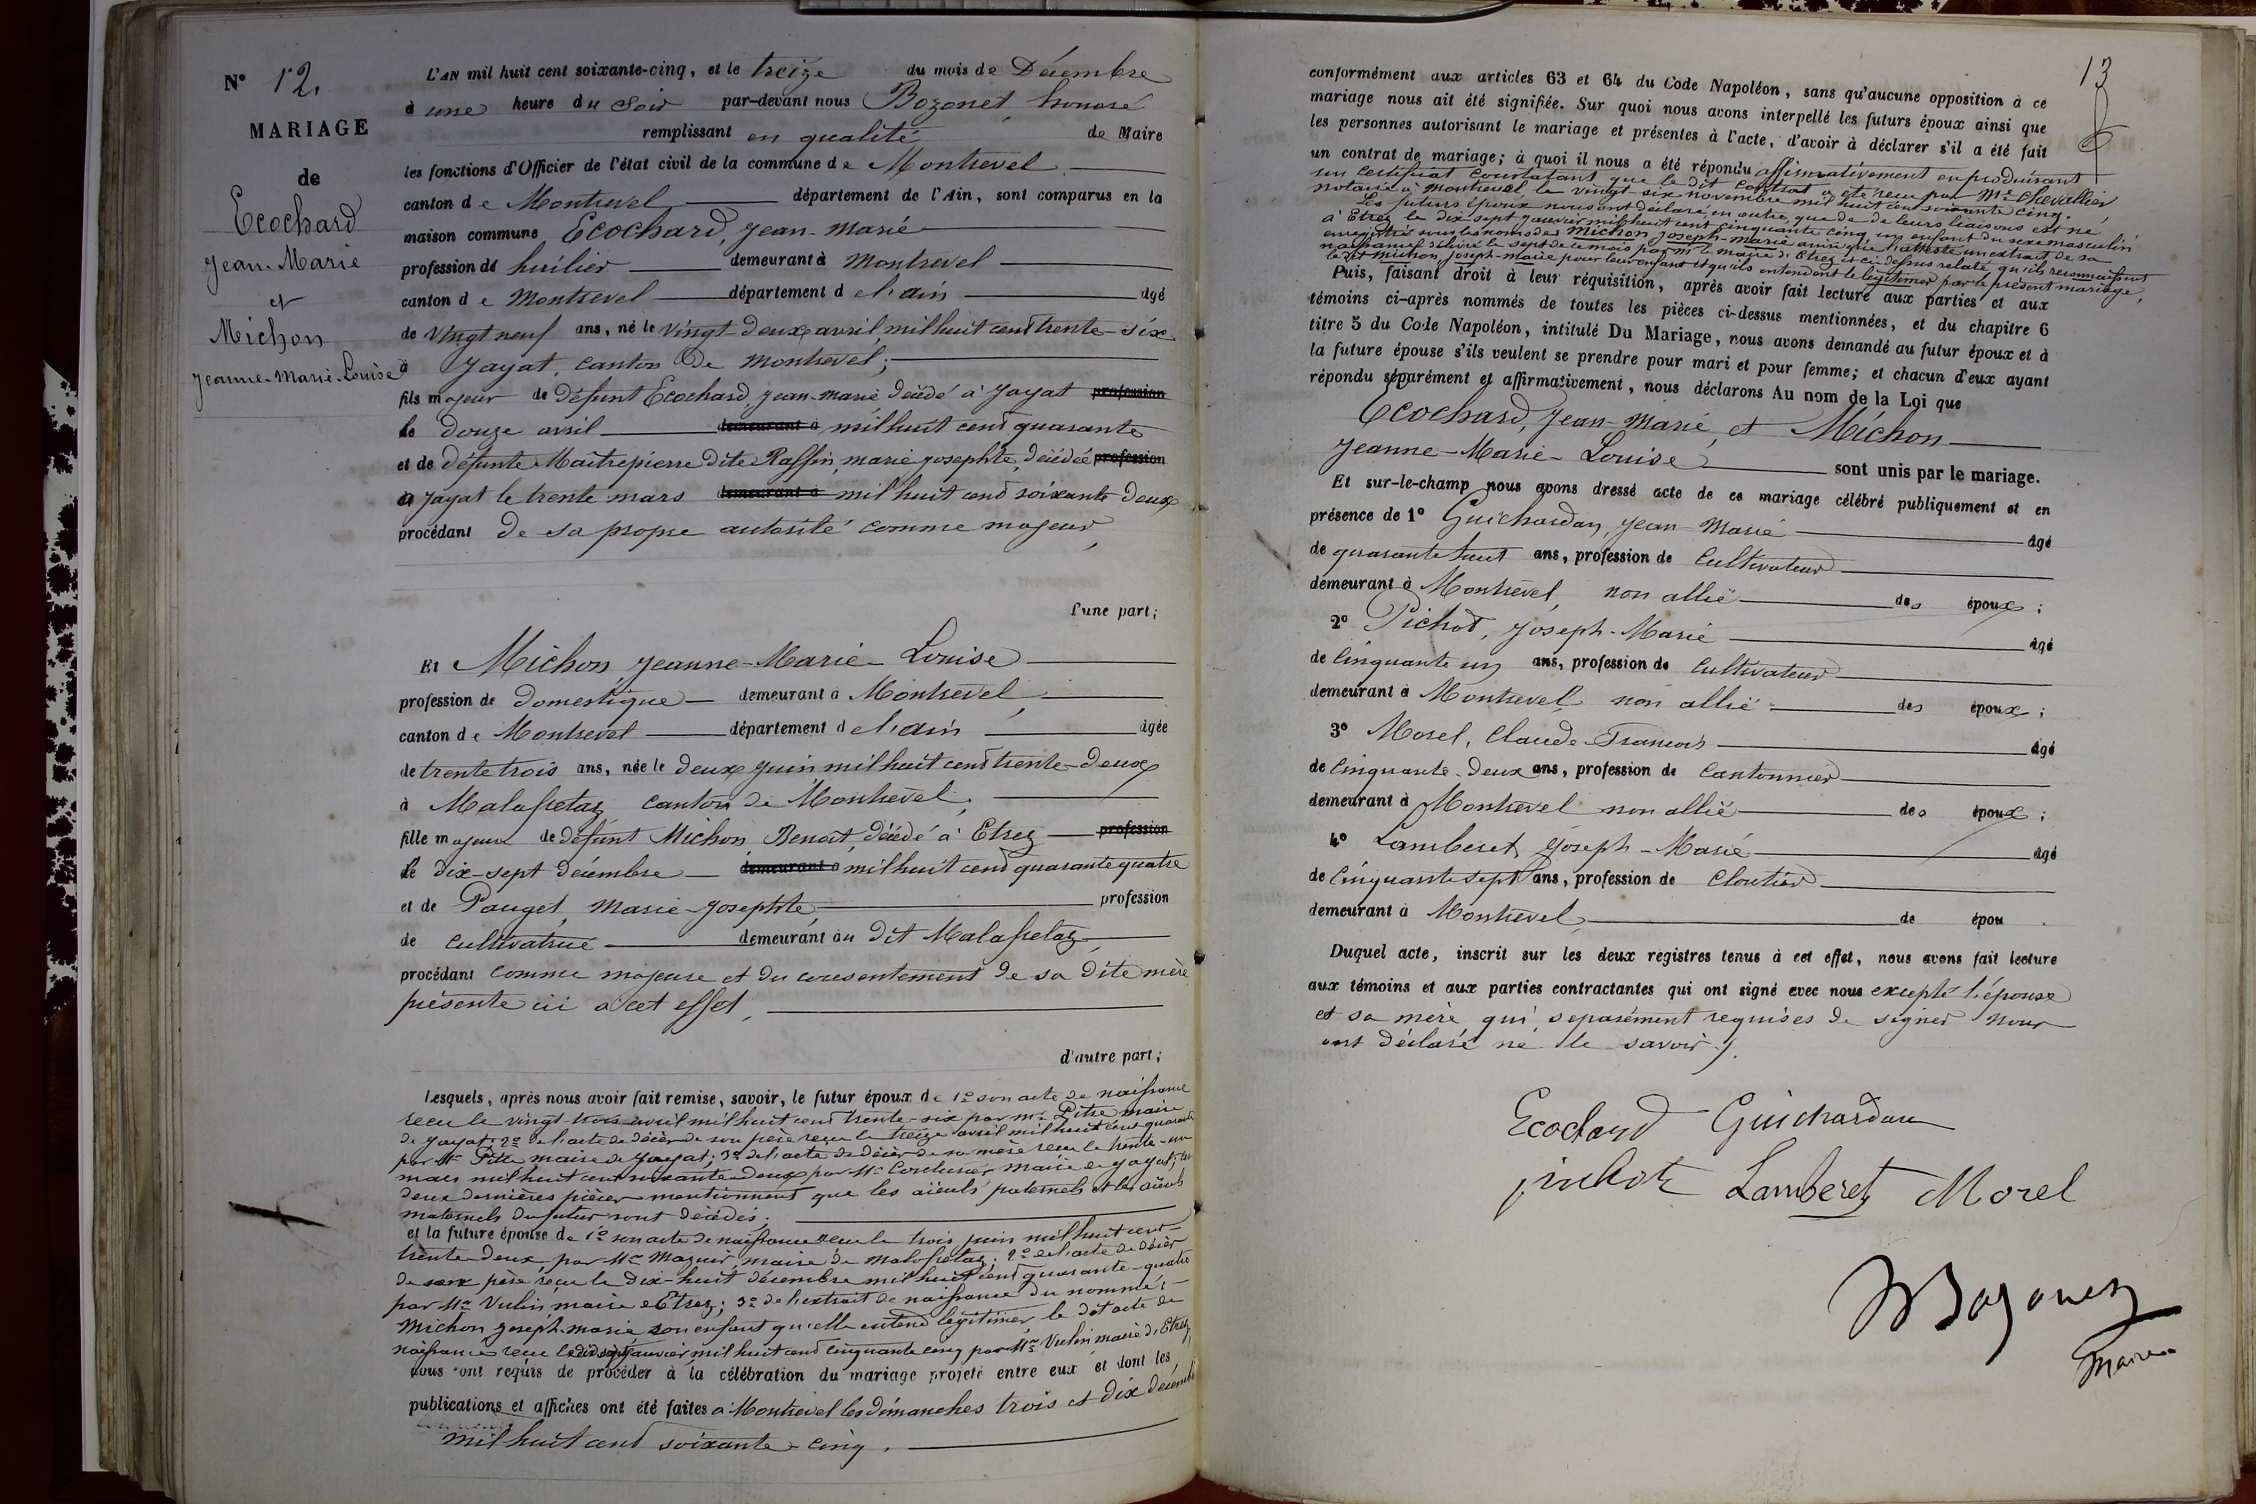 N° 12.
MARIAGE
de
Ecochard
Jean-Marie
et
Michon
Jeanne-Marie-Louise
L'AN mil huit cent soixante-cinq, et le treize du mois de Décembre
à une heure du soir par-devant nous Bozonet, honoré
remplissant en qualité de Maire
les fonctions d'Officier de l'état civil de la commune de Montrevel
canton de Montrevel département de l'Ain, sont comparus en la
maison commune Ecochard, Jean-Marie
profession de huilier demeurant à Montrevel
canton de Montrevel département de l'ain âgé
de vingt neuf ans, né le vingt-deux avril, mil huit cent trente-six
à Jayat, canton de Montrevel;
fils majeur de défunt Ecochard, Jean-Marie décédé à Jayat profession
le douze avril demeurant à mil huit cent quarante
et de défunte Maitrepierre dite Raffin, marie josephte, décédée profession
à Jayat le trente mars demeurant à mil huit cent soixante deux
procédant de sa propre autorité comme majeur,
d'une part;
Et Michon, Jeanne-Marie-Louise
profession de domestique demeurant à Montrevel,
canton de Montrevel département de l'ain âgée
de trente trois ans, née le deux juin, mil huit cent trente-deux
à Malafretaz canton de Montrevel,
fille majeure de défunt Michon, Benoit, décédé à Etrez profession
le dix-sept décembre demeurant à mil huit cent quarante quatre
et de Pauget, Marie-Josephte, profession
de cultivatrice demeurant au dit Malafretaz,
procédant comme majeure et du consentement de sa dite mère
présente ici à cet effet,
d'autre part;
Lesquels, après nous avoir fait remise, savoir, le futur époux de 1° son acte de naissance
reçu le vingt-trois avril mil huit cent trente-six par Mr Pitre maire
de Jayat; 2° de l'acte de décès de son père reçu le treize avril mil huit cent quarante
par Mr Pitre maire de Jayat; 3° de l'acte de décès de sa mère reçu le trente-un
mars mil huit cent soixante-deux par Mr maire de Jayat; les
deux dernières pièces mentionnent que les aïeuls paternels et les aïeuls
maternels du futur sont décédés;
et la future épouse de 1° son acte de naissance reçu le trois juin mil huit cent
trente-deux, par Mr Maguin, maire de Malafretaz; 2° de l'acte de décès
de son père, reçu le dix-huit décembre mil huit cent quarante-quatre
par Mr Vulin, maire d'Etrez; 3° de l'extrait de naissance du nommé
Michon Joseph-marie son enfant qu'elle entend légitimer, le dit acte de
naissance reçu le dix sept janvier mil huit cent cinquante cinq par Mr Vulin maire d'Etrez,
nous ont requis de procéder à la célébration du mariage projeté entre eux et dont les
publications et affiches ont été faites à Montrevel les dimanches trois et dix décembre
mil huit cent soixante-cinq.
13
conformément aux articles 63 et 64 du Code Napoléon, sans qu'aucune opposition à ce
mariage nous ait été signifiée. Sur quoi nous avons interpellé les futurs époux ainsi que
les personnes autorisant le mariage et présentes à l'acte, d'avoir à déclarer s'il a été fait
un contrat de mariage; à quoi il nous a été répondu affirmativement en produisant
un certificat constatant que le dit contrat a été reçu par Me Chevallier
notaire à Montrevel le vingt six novembre mil huit cent soixante cinq.
Les futurs époux nous ont déclaré, en outre, que de leurs liaisons est né
à Etrez le dix sept janvier mil huit cent cinquante cinq un enfant du sexe masculin
enregistré sous les noms de Michon Joseph-marie ainsi que l'atteste un extrait de sa
naissance délivré le sept de ce mois par Mr le maire d'Etrez et ci-dessus relaté, qu'ils reconnaissent
le dit Michon, Joseph-marie pour leur enfant et qu'ils entendent le légitimer par le présent mariage,
Puis, faisant droit à leur réquisition, après avoir fait lecture aux parties et aux
témoins ci-après nommés de toutes les pièces ci-dessus mentionnées, et du chapitre 6
titre 5 du Code Napoléon, intitulé Du Mariage, nous avons demandé au futur époux et à
la future épouse s'ils veulent se prendre pour mari et pour femme; et chacun d'eux ayant
répondu séparément et affirmativement, nous déclarons Au nom de la Loi que
Ecochard, Jean-Marie, et Michon
Jeanne-Marie-Louise sont unis par le mariage.
Et sur-le-champ nous avons dressé acte de ce mariage célébré publiquement et en
présence de 1° Guichardan, Jean-Marie âgé
de quarante huit ans, profession de cultivateur
demeurant à Montrevel, non allié des époux;
2° Pichod, Joseph-Marie âgé
de cinquante un ans, profession de cultivateur
demeurant à Montrevel non allié des époux;
3° Morel, Claude-François âgé
de cinquante-deux ans, profession de cantonnier
demeurant à Montrevel non allié des époux;
4° Lamberet, Joseph-Marie âgé
de cinquante sept ans, profession de cloutier
demeurant à Montrevel de épou
Duquel acte, inscrit sur les deux registres tenus à cet effet, nous avons fait lecture
aux témoins et aux parties contractantes qui ont signé avec nous excepté l'épouse
et sa mère qui, séparément requises de signer nous
ont déclaré ne le savoir.
Ecochard Guichardan
pichot Lamberet Morel
Bozonet
Maire